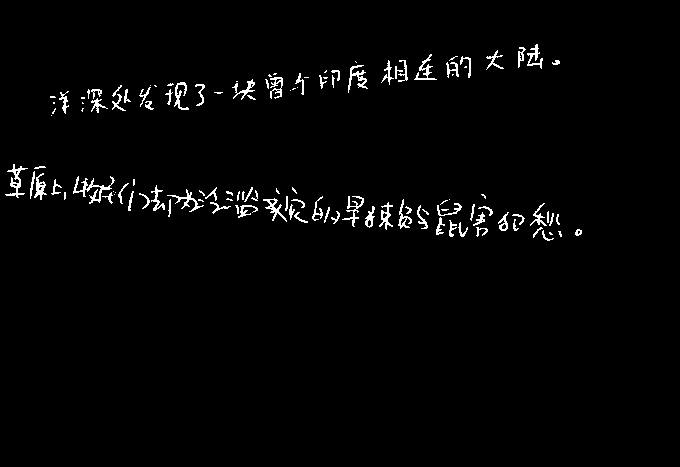 洋深处发现了一块曾与印度相连的大陆。
草原上,牧民们却为泛滥成灾的旱獭与鼠害犯愁。